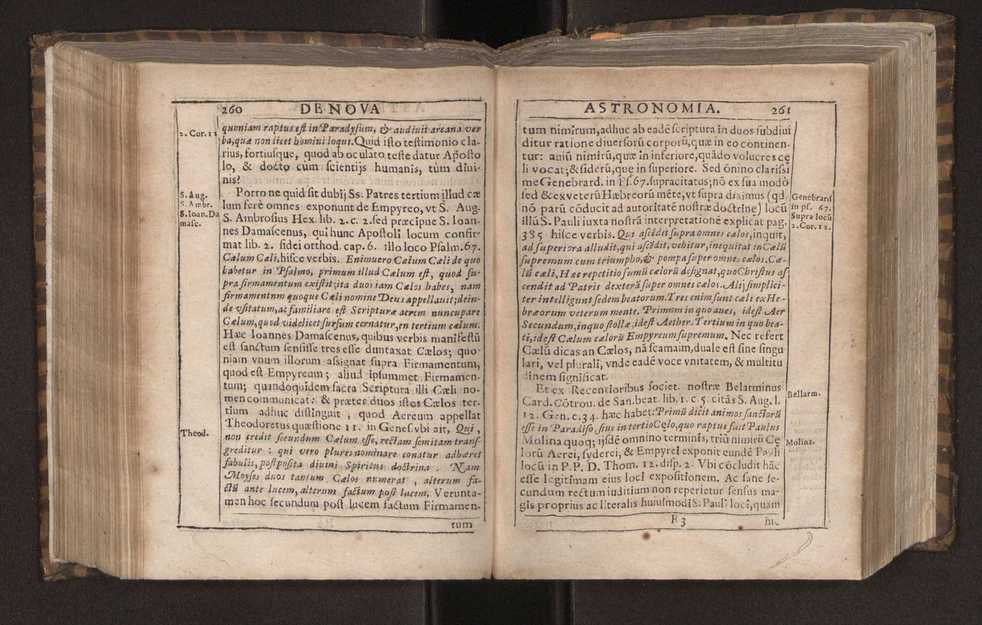 260 DE NOVA
2. Cor. 12
quoniam raptus est in Paradysum, & audiuit arcana ver
ba, quæ non licet homini loqui. Quid isto testimonio cla-
rius, fortiusque, quod ab oculato teste datur Aposto
lo, & docto cùm scientijs humanis, tùm diui-
nis?
S. Aug.
S. Ambr.
S. Ioan. Da
masc.
Porro ne quid sit dubij; Ss. Patres tertium illud cæ
lum ferè omnes exponunt de Empyreo, vt S. Aug.
S. Ambrosius Hex. lib. 2. c. 2. sed præcipue S. Ioan-
nes Damascenus, qui hunc Apostoli locum confir-
mat lib. 2. fidei orthod. cap. 6. illo loco Psalm. 67.
Cælum Cæli, hisce verbis. Enimuero Cælum Cæli de quo
habetur in Psalmo, primum illud Cælum est, quod su-
pra firmamentum existit; ita duos iam Cælos habes, nam
firmamentum quoque Cæli nomine Deus appellauit; dein-
de vsitatum, ac familiare est Scripturæ aerem nuncupare
Cælum, quod videlicet sursum cernatur, en tertium cælum.
Hæc Ioannes Damascenus, quibus verbis manifestũ
est sanctum sensisse tres esse duntaxat Cælos; quo-
niam vnum illorum assignat supra Firmamentum,
quod est Empyreum; aliud ipsummet Firmamen-
tum; quandoquidem sacra Scriptura illi Cæli no-
men communicat: & præter duos istos Cælos ter-
tium adhuc distinguit, quod Aereum appellat
Theod.
Theodoretus quæstione 11. in Genes. vbi ait, Qui,
non credit secundum Cælum esse, rectam semitam trans-
greditur: qui vero plures nominare conatur adhæret
fabulis, postposita diuini Spiritus doctrina. Nam
Moyses duos tantum Cælos numerat, alterum fa-
ctũ ante lucem, alterum factum post lucem. Verunta-
men hoc secundum post lucem factum Firmamen-
tum
ASTRONOMIA. 261
tum nimirum, adhuc ab eadē scriptura in duos subdiui
ditur ratione diuersorũ corporũ, quæ in eo continen-
tur: auiũ nimirũ, quæ in inferiore, quãdo volucres cę
li vocat; & siderũ, quæ in superiore. Sed õnino clarissi
me Genebrard. in Ps. 67. supra citatus; nõ ex sua modò
Genebrard
in ps. 67.
Supra locũ
2. Cor. 12.
sed & ex veterũ Hæbreorũ mēte, vt supra diximus (qđ
nõ parũ cõducit ad autoritatē nostræ doctrinę) locũ
illũ S. Pauli iuxta nostrã interpretationē explicat pag.
385 hisce verbis. Qui ascēdit supra omnes cælos, inquit,
ad superiora alludit, qui ascēdit, vehitur, inequitat in Cælũ
supremum cum triumpho, & pompa super omnes cælos. Cæ-
lũ cæli, Hæc repetitio sumũ cælorũ designat, quo Christus as
cendit ad Patris dexterã super omnes cælos. Alij simplici-
ter intelligunt sedem beatorum. Tres enim sunt cæli ex He-
bræorum veterum mente. Primum in quo aues, idest Aer
Secundum, in quo stellæ, idest Aether. Tertium in quo bea-
ti, idest Cælum cælorũ Empyreum supremum. Nec refert
Cælũ dicas an Cælos, nã scamaim, duale est sine singu
lari, vel plurali, vnde eadē voce vnitatem, & multitu
dinem significat.
Bellarm.
Et ex Recentioribus societ. nostræ Belarminus
Card. Cõtrou. de San. beat. lib. 1. c. 5. citãs S. Aug. l.
12. Gen. c. 34. hæc habet: Primũ dicit animos sanctorũ
esse in Paradiso, siue in tertio Cęlo, quo raptus fuit Paulus
Molina.
Molina quoq; ijsdē omnino terminis, triũ nimirũ Cę
lorũ Aerei, syderei, & Empyrei exponit eundē Pauli
locũ in P. P. D. Thom. 12. disp. 2. Vbi cõcludit hãc
esse legitimam eius loci expositionem. Ac sane se-
cundum rectum iuditium non reperietur sensus ma-
gis proprius ac literalis huiusmodi S. Pauli loci, quam
R 3 hic